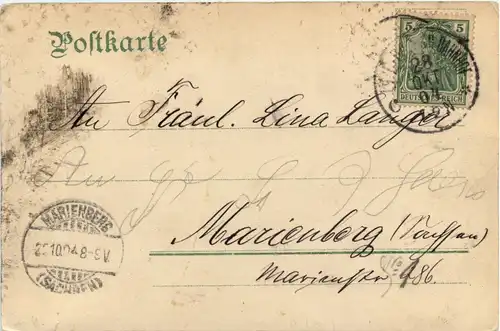 Postkarte
5 5
28
OKT
04
DEUTSCHES REICH
An Fräul. Lina Langer
An
MARIENBERG
10.04 8-9V.
(SACHSEN)
Marienberg (Sachsen)
Marienstr 486.